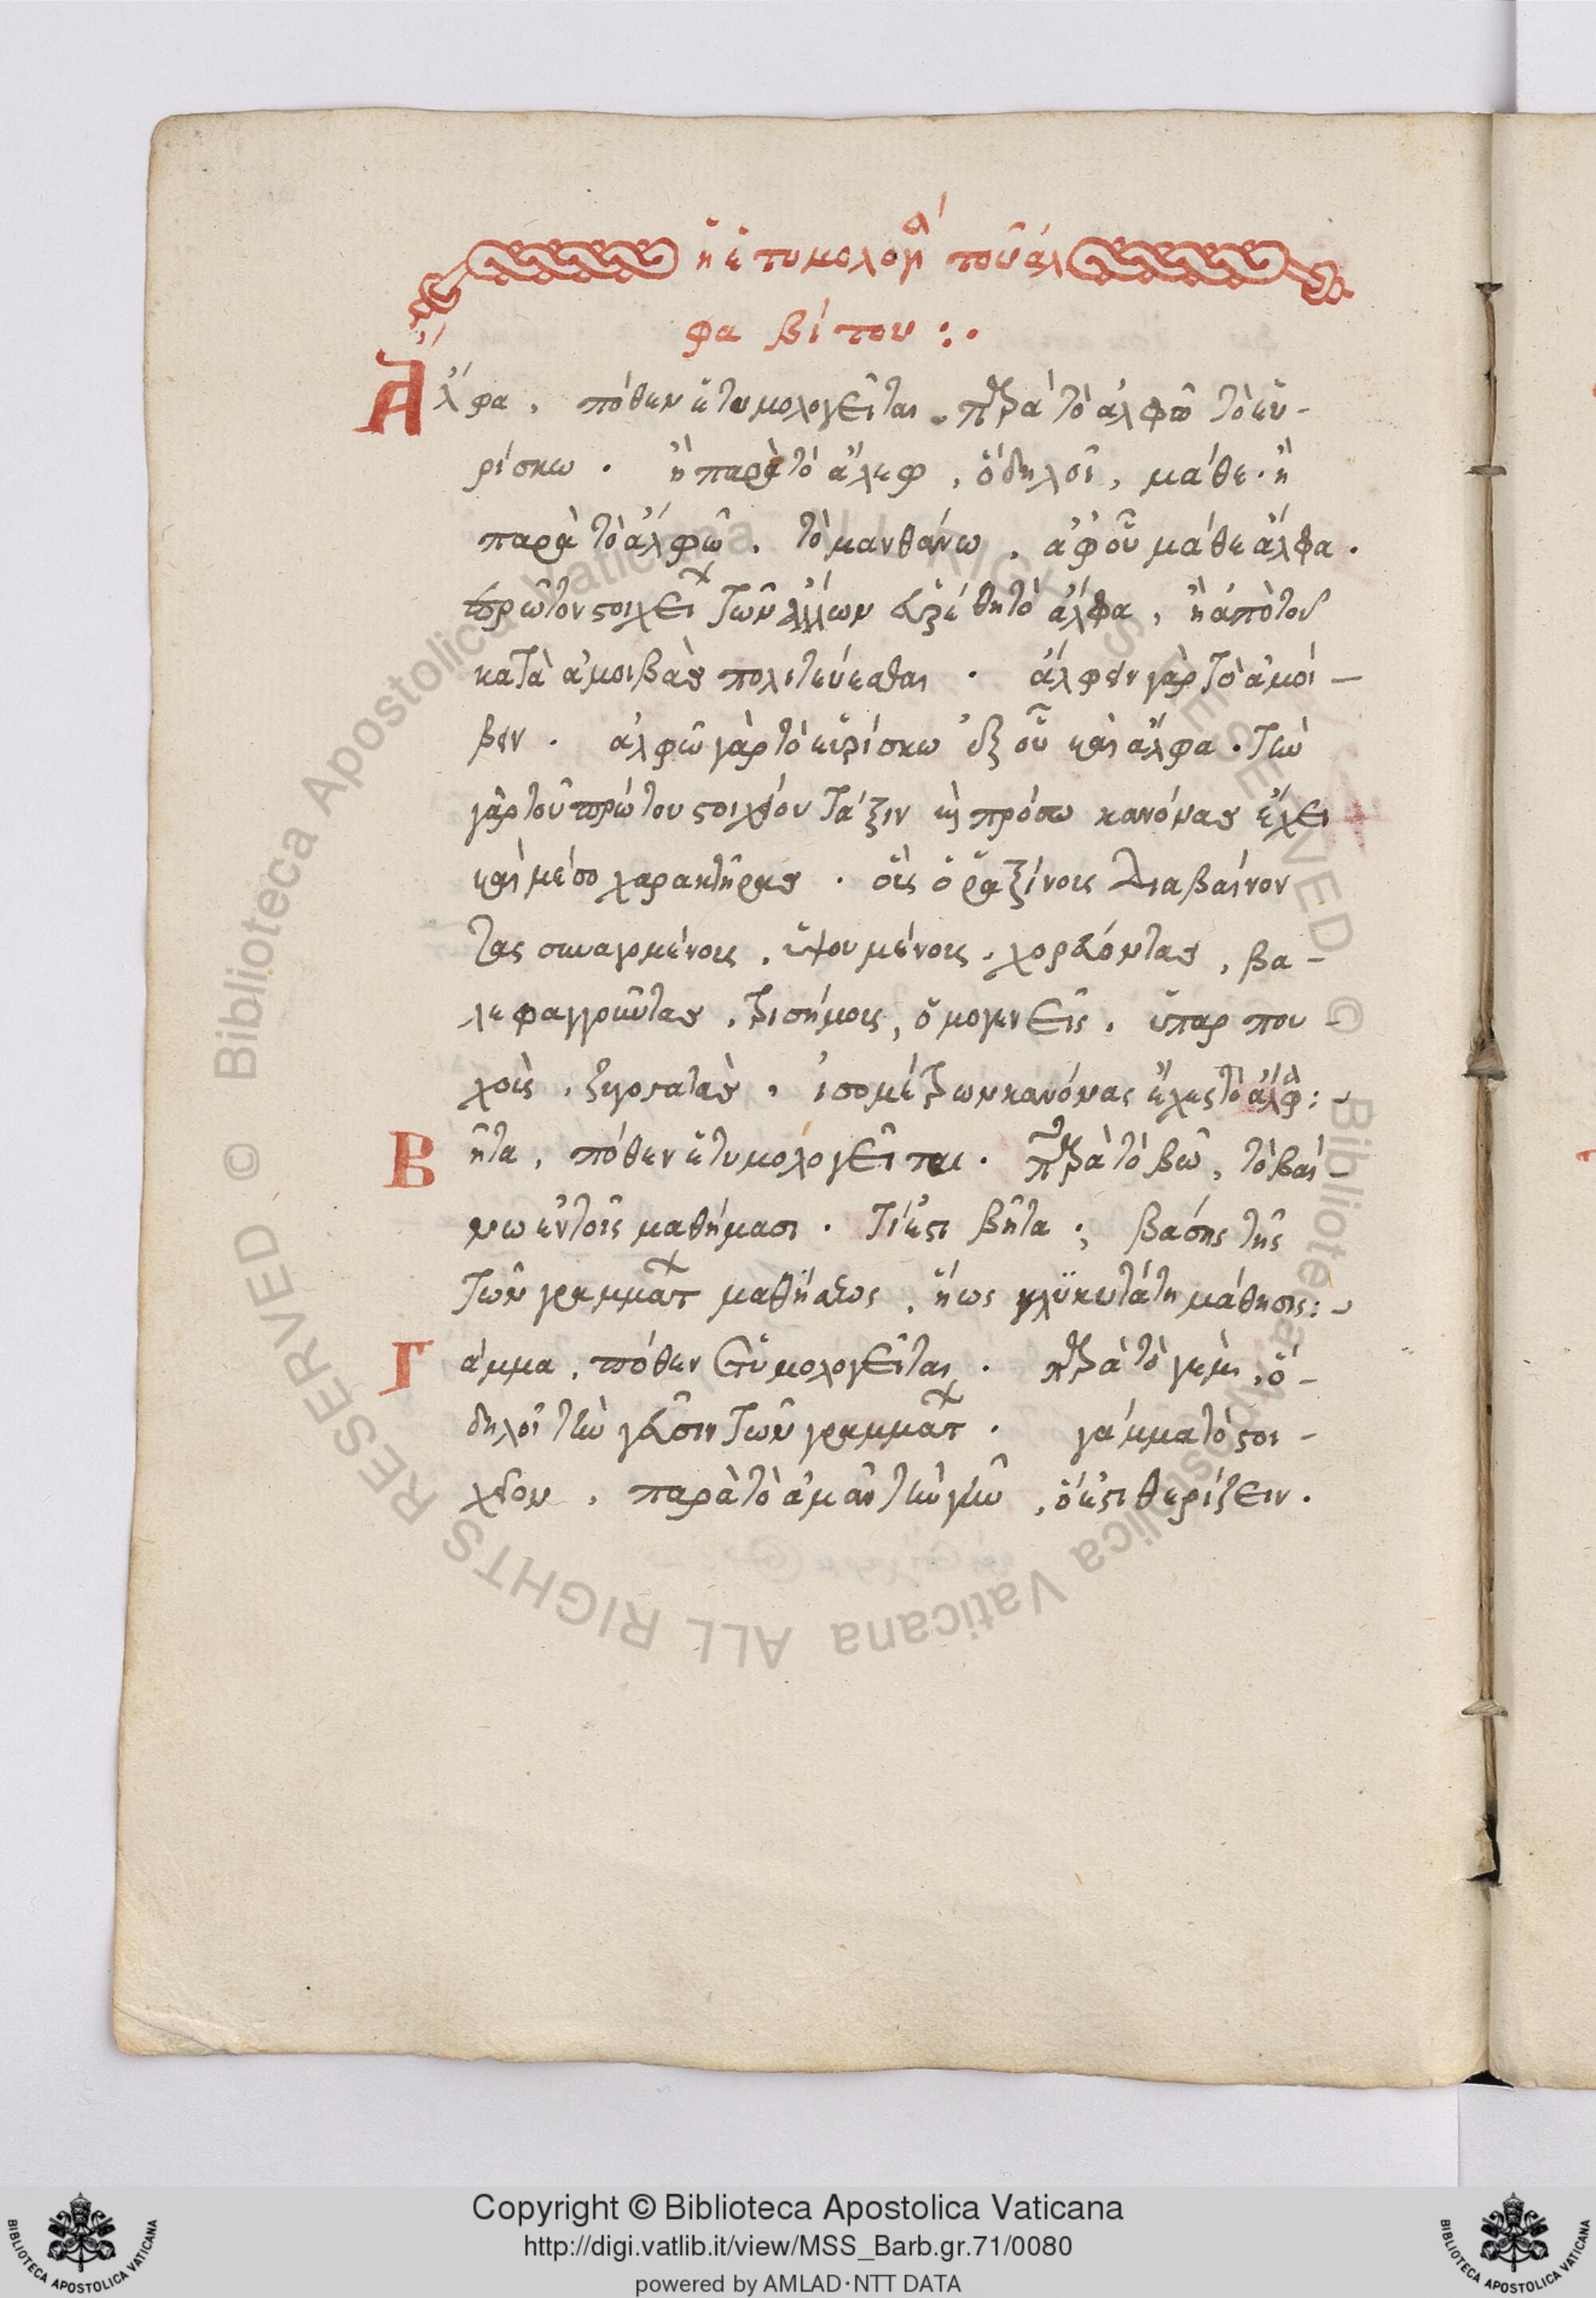 ἡ ἐτυμολογία τοῦ ἀλ
φα βί του :.
Ἄλφα, πόθεν ἐτυμολογεῖται. παρὰ τὸ ἀλφῶ τὸ εὑ-
ρίσκω. ἢ παρὰ τὸ ἄλεφ, ὃ δηλοῖ, μάθε. ἢ
παρὰ τὸ ἀλφῶ. τὸ μανθάνω. ἀφ' οὗ μάθε ἄλφα.
πρῶτον στοιχεῖ τῶν ἄλλων εὑρέθη τὸ ἄλφα, ἢ ἀπὸ τοῦ
κατὰ ἀμοιβὰς πολιτεύεσθαι. ἄλφειν γὰρ τὸ ἀμοί-
βειν. ἀλφῶ γὰρ τὸ εὑρίσκω ἐξ οὗ καὶ ἄλφα. τὴν
γὰρ τοῦ πρώτου στοιχείου τάξιν καὶ πρόσω κανόνας ἔχει
καὶ μέσο χαρακτῆρας. οἷς ὁρᾶ ξένοις διαβαίνον
τας συναγομένοις, ὑψουμένοις, χορεύοντας, βα-
τρισήμοις, ὁμογενεῖς. ὑπάρ που-
χοὺς, ζυγοστάτας, ἰσομέτρων κανόνας ἔχει τὸ ἄλφα :-
Βῆτα, πόθεν ἐτυμολογεῖται. παρὰ τὸ βῶ, τὸ βαί-
νω ἐν τοῖς μαθήμασι. τί ἐστι βῆτα ; βάσης τῆς
τῶν γραμμάτ μαθήσεως, ἤως γλυκυτάτη μάθησις :-
Γάμμα, πόθεν ἐτυμολογεῖται. παρὰ τὸ ὃ-
δηλοῖ τὴν γεῦσιν τῶν γραμμάτ. γάμμα τὸ στοι-
χεῖον, παρὰ τὸ ἀμᾶν τὴν γῆν, ὅ ἐστι θερίζειν.
Copyright © Biblioteca Apostolica Vaticana
http://digi.vatlib.it/view/MSS_Barb.gr.71/0080
powered by AMLAD·NTT DATA
© Biblioteca Apostolica Vaticana ALL RIGHTS RESERVED © Biblioteca Apostolica Vaticana ALL RIGHTS RESERVED
BIBLIOTECA APOSTOLICA VATICANA
BIBLIOTECA APOSTOLICA VATICANA